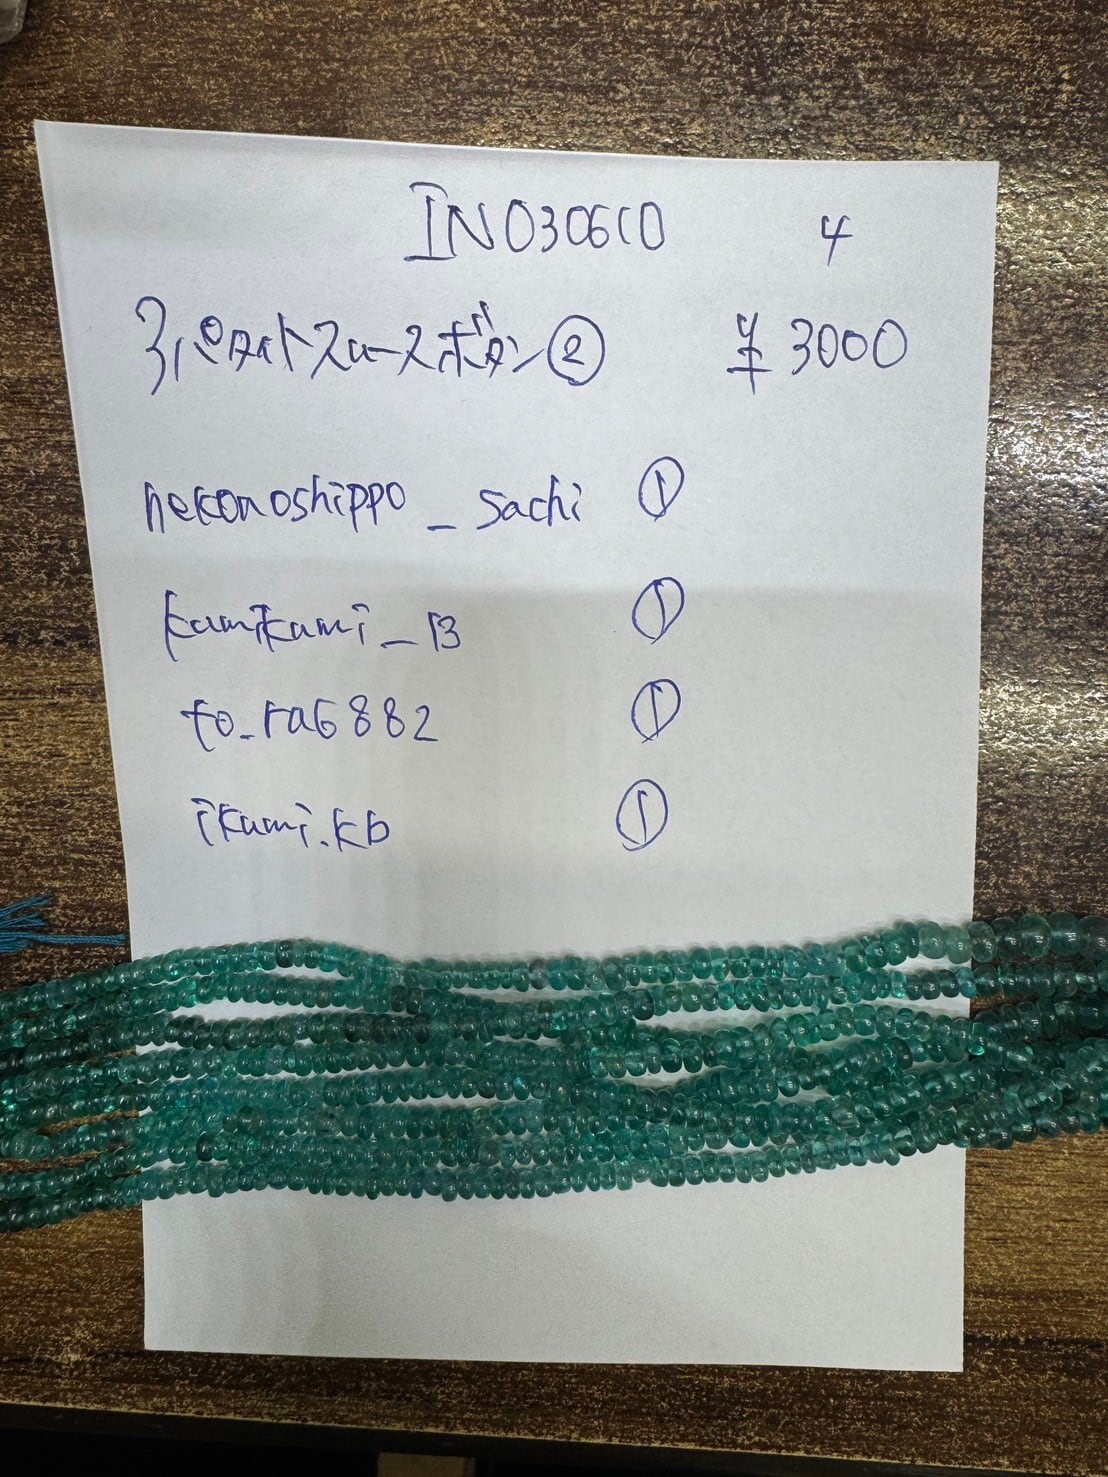 IN030610 4
アパタイトスムースボタン② ¥3000
nekonoshippo_sachi ①
kamikami_13 ①
to_ra6882 ①
ikumi.kb ①